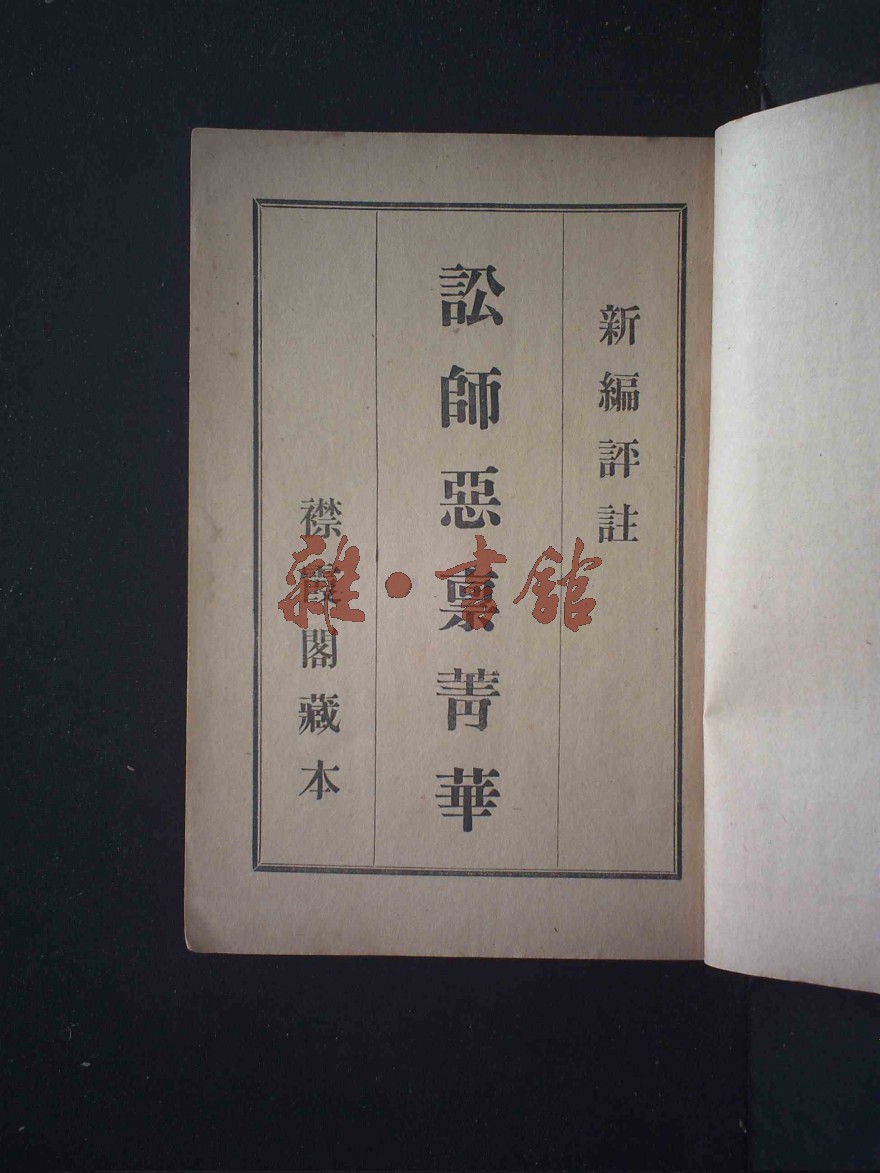 新編評註
訟師惡禀菁華
襟霞閣藏本
雜·書館